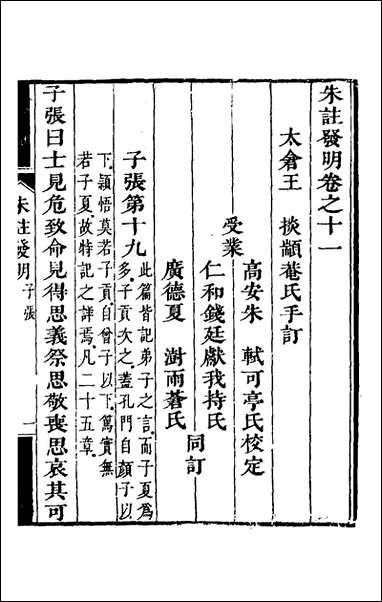 朱註發明卷之十一
太倉王 掞顓菴氏手訂
受業
高安朱 軾可亭氏校定
仁和錢廷獻我持氏
廣德夏 澍雨蒼氏
同訂
子張第十九
此篇皆記弟子之言而子夏為
多子貢次之蓋孔門自顏子以
下穎悟莫若子貢自曾子以下篤實無
若子夏故特記之詳焉凡二十五章
子張曰士見危致命見得思義祭思敬喪思哀其可
朱註發明 子張 一